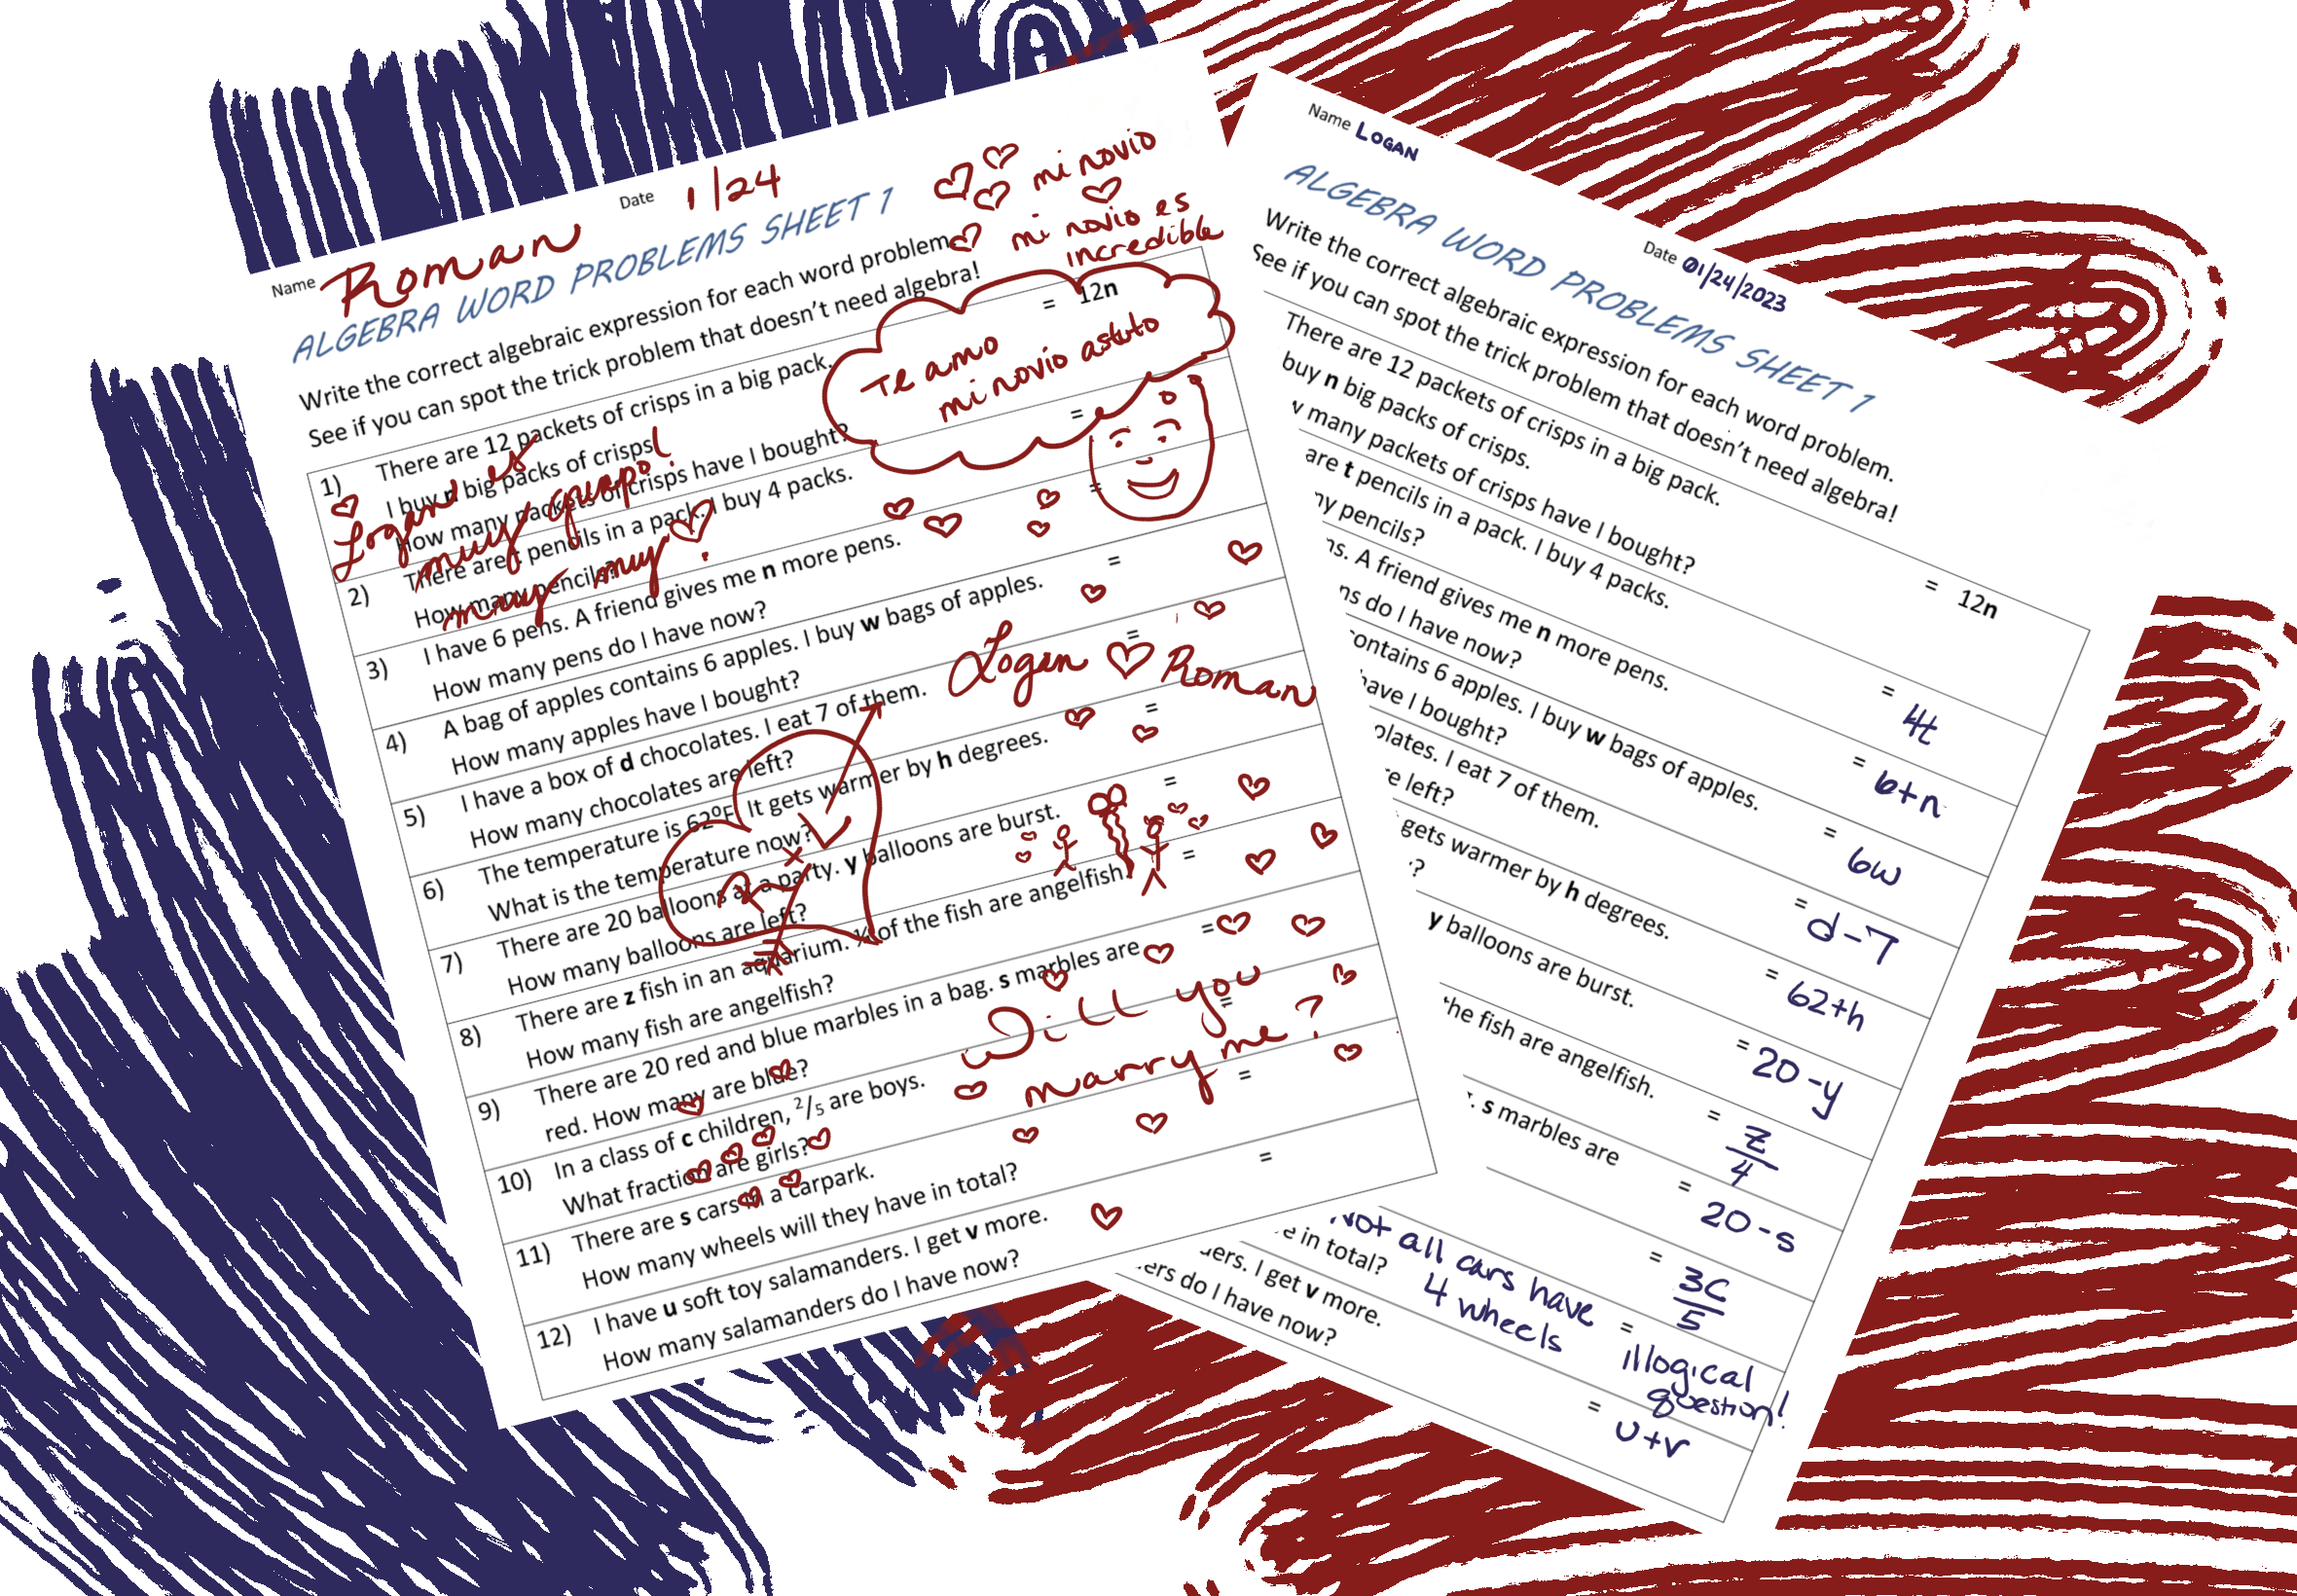 Name Roman
Date 1/24
ALGEBRA WORD PROBLEMS SHEET 1
mi novio
mi novio es
incredible
Write the correct algebraic expression for each word problem.
See if you can spot the trick problem that doesn't need algebra!
1) There are 12 packets of crisps in a big pack.
I buy n big packs of crisps.
How many packets of crisps have I bought?
= 12n
Te amo
mi novio astuto
Logan es
muy guapo!
muy muy
2) There are t pencils in a pack. I buy 4 packs.
How many pencils?
=
3) I have 6 pens. A friend gives me n more pens.
How many pens do I have now?
=
4) A bag of apples contains 6 apples. I buy w bags of apples.
How many apples have I bought?
=
5) I have a box of d chocolates. I eat 7 of them.
How many chocolates are left?
=
Logan ♡ Roman
6) The temperature is 62ºF. It gets warmer by h degrees.
What is the temperature now?
=
R x L
7) There are 20 balloons at a party. y balloons are burst.
How many balloons are left?
=
8) There are z fish in an aquarium. ¼ of the fish are angelfish.
How many fish are angelfish?
=
9) There are 20 red and blue marbles in a bag. s marbles are
red. How many are blue?
=
10) In a class of c children, 2/5 are boys.
What fraction are girls?
=
Will you
marry me?
11) There are s cars in a carpark.
How many wheels will they have in total?
=
12) I have u soft toy salamanders. I get v more.
How many salamanders do I have now?
=
Name LOGAN
Date 01/24/2023
ALGEBRA WORD PROBLEMS SHEET 1
Write the correct algebraic expression for each word problem.
See if you can spot the trick problem that doesn't need algebra!
There are 12 packets of crisps in a big pack.
buy n big packs of crisps.
many packets of crisps have I bought?
= 12n
are t pencils in a pack. I buy 4 packs.
pencils?
= 4t
A friend gives me n more pens.
do I have now?
= 6+n
contains 6 apples. I buy w bags of apples.
have I bought?
= 6w
I eat 7 of them.
left?
= d-7
gets warmer by h degrees.
?
= 62+h
y balloons are burst.
= 20-y
the fish are angelfish.
= z/4
s marbles are
= 20-s
= 3c/5
Not all cars have
4 wheels
in total?
= illogical
question!
I get v more.
do I have now?
= u+v